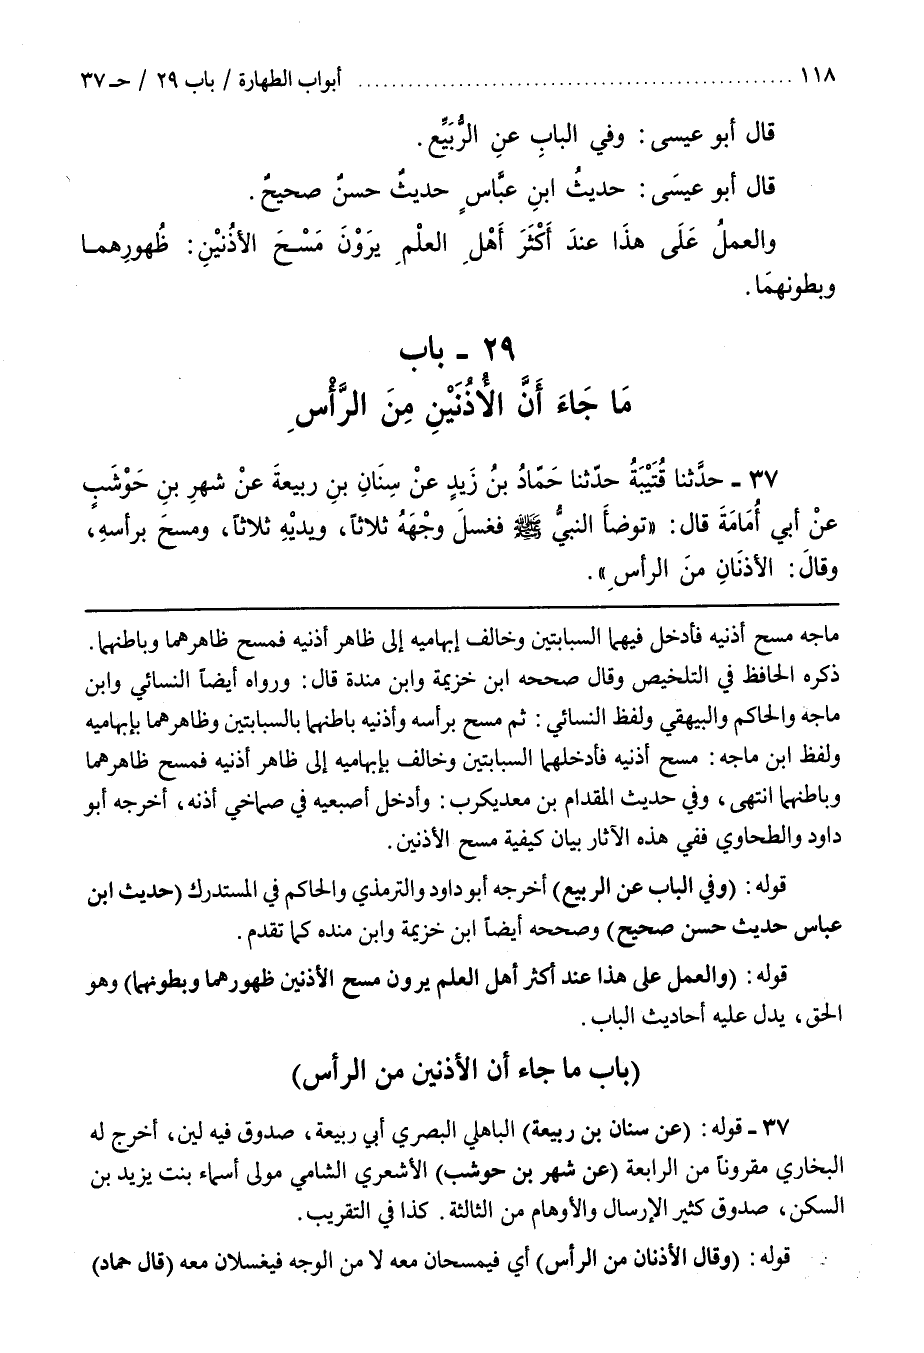 ١١٨ ........................................ أبواب الطهارة / باب ٢٩ / حـ ٣٧
قال أبو عيسى: وفي البابِ عنِ الرُّبَيِّع.
قال أبو عيسَى: حديثُ ابنِ عبَّاسٍ حديثٌ حسنٌ صحيحٌ.
والعملُ عَلَى هذَا عندَ أَكْثَرَ أَهْلِ العلْمِ يرَوْنَ مَسْحَ الأذُنَيْنِ: ظُهورِهمـا
وبطونهمَا.
٢٩ ـ باب
مَا جَاءَ أَنَّ الأُذُنَيْنِ مِنَ الرَّأْسِ
٣٧ ـ حدَّثنا قُتَيْبَةُ حدّثنا حَمّادُ بنُ زَيدٍ عنْ سِنَانِ بنِ ربيعةَ عنْ شهرِ بنِ حَوْشَبٍ
عنْ أبي أُمَامَةَ قال: «توضأَ النبيُّ ﷺ فغسلَ وجْهَهُ ثلاثاً، ويديْهِ ثلاثاً، ومسحَ برأسهِ،
وقالَ: الأذنَانِ منَ الرأسِ».
ماجه مسح أذنيه فأدخل فيهما السبابتين وخالف إبهاميه إلى ظاهر أذنيه فمسح ظاهرهما وباطنهما.
ذكره الحافظ في التلخيص وقال صححه ابن خزيمة وابن مندة قال: ورواه أيضاً النسائي وابن
ماجه والحاكم والبيهقي ولفظ النسائي: ثم مسح برأسه وأذنيه باطنهما بالسبابتين وظاهرهما بإبهاميه
ولفظ ابن ماجه: مسح أذنيه فأدخلهما السبابتين وخالف بإبهاميه إلى ظاهر أذنيه فمسح ظاهرهما
وباطنهما انتهى، وفي حديث المقدام بن معديكرب: وأدخل أصبعيه في صماخي أذنه، أخرجه أبو
داود والطحاوي ففي هذه الآثار بيان كيفية مسح الأذنين.
قوله: (وفي الباب عن الربيع) أخرجه أبو داود والترمذي والحاكم في المستدرك (حديث ابن
عباس حديث حسن صحيح) وصححه أيضاً ابن خزيمة وابن منده كما تقدم.
قوله: (والعمل على هذا عند أكثر أهل العلم يرون مسح الأذنين ظهورهما وبطونهما) وهو
الحق، يدل عليه أحاديث الباب.
(باب ما جاء أن الأذنين من الرأس)
٣٧ ـ قوله: (عن سنان بن ربيعة) الباهلي البصري أبي ربيعة، صدوق فيه لين، أخرج له
البخاري مقروناً من الرابعة (عن شهر بن حوشب) الأشعري الشامي مولى أسماء بنت يزيد بن
السكن، صدوق كثير الإرسال والأوهام من الثالثة. كذا في التقريب.
قوله: (وقال الأذنان من الرأس) أي فيمسحان معه لا من الوجه فيغسلان معه (قال حماد)